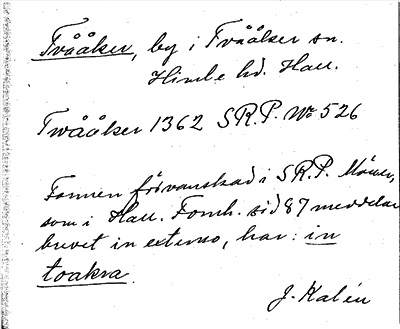 Tvååker, by i Tvååker sn.
Himle hd. Hall.
Twååker 1362 S.R.P. No 526
Formen förvanskad i S.R.P.
som i Hall. Fornh. sid 87 meddelar
brevet in extenso, har: in
toakra.
J. Kalén